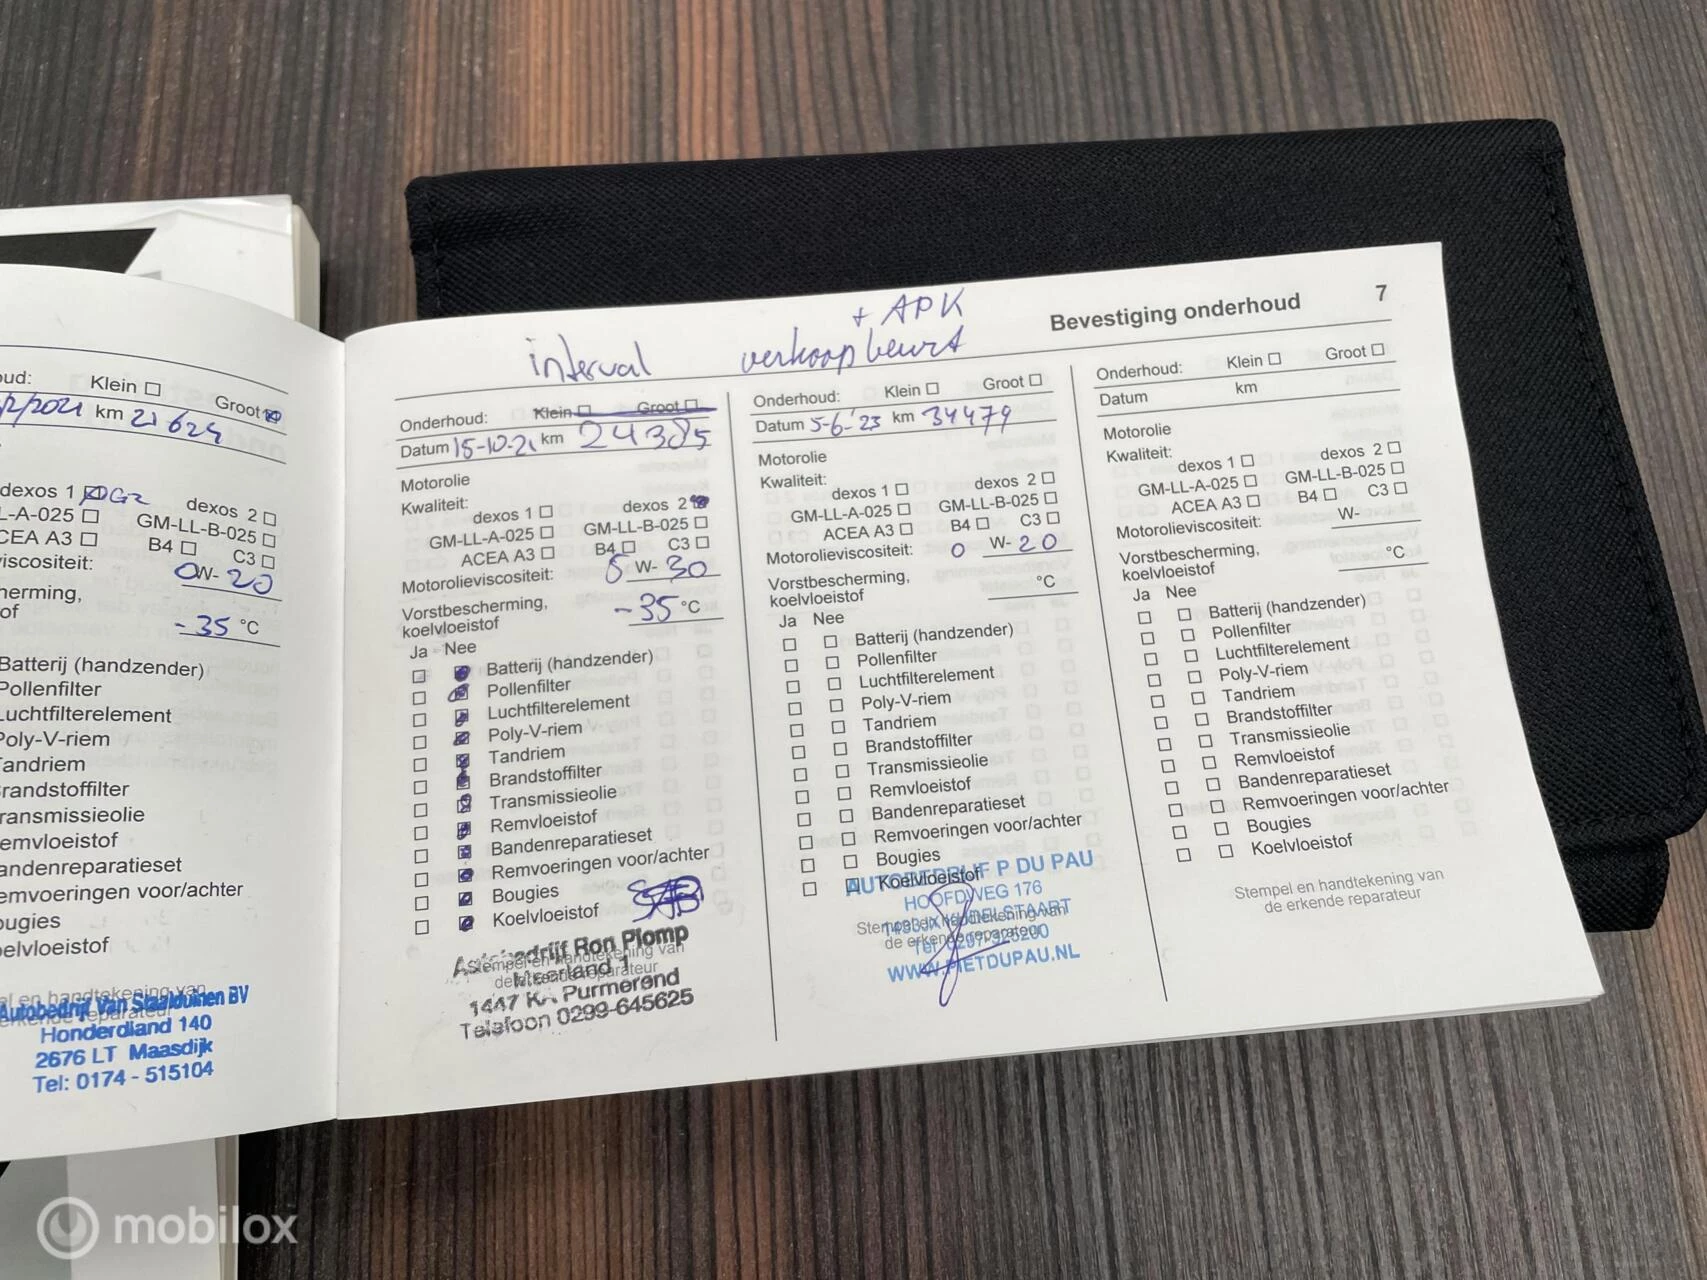 oud: Klein Groot
/2021 km 21624
dexos 1 dexos 2
L-A-025 GM-LL-B-025
CEA A3 B4 C3
iscositeit: 0W- 20
herming,
of - 35 °C
Batterij (handzender)
Pollenfilter
Luchtfilterelement
Poly-V-riem
Tandriem
Brandstoffilter
ransmissieolie
emvloeistof
andenreparatieset
emvoeringen voor/achter
ougies
oelvloeistof
el en handtekening van
Autobedrijf Van Staalduinen BV
Honderdland 140
2676 LT Maasdijk
Tel: 0174 - 515104
Bevestiging onderhoud 7
interval
Onderhoud: Klein Groot
Datum 15-10-21 km 24385
Motorolie
Kwaliteit:
dexos 1 dexos 2
GM-LL-A-025 GM-LL-B-025
ACEA A3 B4 C3
Motorolieviscositeit: 5 W- 30
Vorstbescherming,
koelvloeistof -35 °C
Ja Nee
Batterij (handzender)
Pollenfilter
Luchtfilterelement
Poly-V-riem
Tandriem
Brandstoffilter
Transmissieolie
Remvloeistof
Bandenreparatieset
Remvoeringen voor/achter
Bougies
Koelvloeistof
Stempel en handtekening van
de erkende reparateur
Autobedrijf Ron Plomp
Meerland 1
1447 KA Purmerend
Telefoon 0299-645625
+ APK
verkoopbeurt
Onderhoud: Klein Groot
Datum 5-6-'23 km 34479
Motorolie
Kwaliteit:
dexos 1 dexos 2
GM-LL-A-025 GM-LL-B-025
ACEA A3 B4 C3
Motorolieviscositeit: 0 W- 20
Vorstbescherming,
koelvloeistof °C
Ja Nee
Batterij (handzender)
Pollenfilter
Luchtfilterelement
Poly-V-riem
Tandriem
Brandstoffilter
Transmissieolie
Remvloeistof
Bandenreparatieset
Remvoeringen voor/achter
Bougies
Koelvloeistof
Stempel en handtekening van
de erkende reparateur
AUTOBEDRIJF P DU PAU
HOOFDWEG 176
KUDELSTAART
WWW.PIETDUPAU.NL
Onderhoud: Klein Groot
Datum km
Motorolie
Kwaliteit:
dexos 1 dexos 2
GM-LL-A-025 GM-LL-B-025
ACEA A3 B4 C3
Motorolieviscositeit: W-
Vorstbescherming,
koelvloeistof °C
Ja Nee
Batterij (handzender)
Pollenfilter
Luchtfilterelement
Poly-V-riem
Tandriem
Brandstoffilter
Transmissieolie
Remvloeistof
Bandenreparatieset
Remvoeringen voor/achter
Bougies
Koelvloeistof
Stempel en handtekening van
de erkende reparateur
mobilox